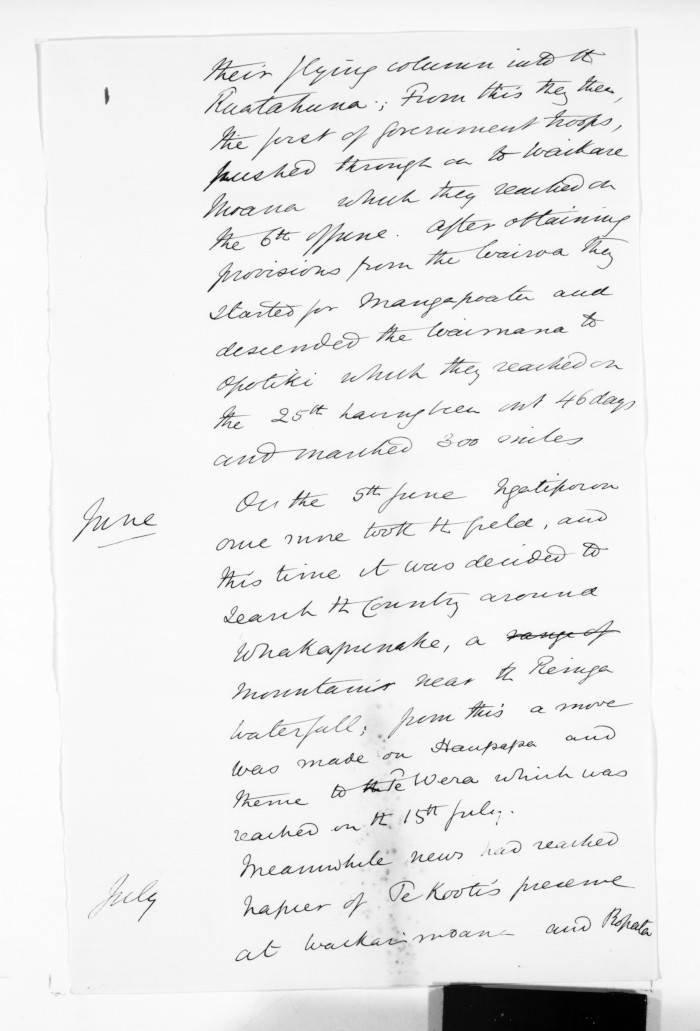 their flying column into th
Ruatahuna; From this they then,
the first of Government troops,
pushed through on to Waikare
Moana which they reached on
the 6th of June. After obtaining
provisions from the Wairoa they
started for Mangapoatu and
descended the Waimana to
Opotiki which they reached on
the 25th having been out 46 days
and marched 300 miles
June
On the 5th June Ngatiporou
once more took th field, and
this time it was decided to
search th Country around
Whakapunake, a range of
mountain near th Reinga
waterfall; from this a move
was made on Haupapa and
thence to th Te Wera which was
reached on th 15th July.
July
Meanwhile news had reached
Napier of Te Kooti's presence
at Waikarimoana and Ropata